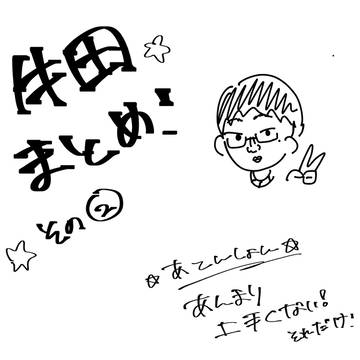 牛田
まとめ!
その②
☆あてんしょん☆
あんまり
上手くない!
それだけ!